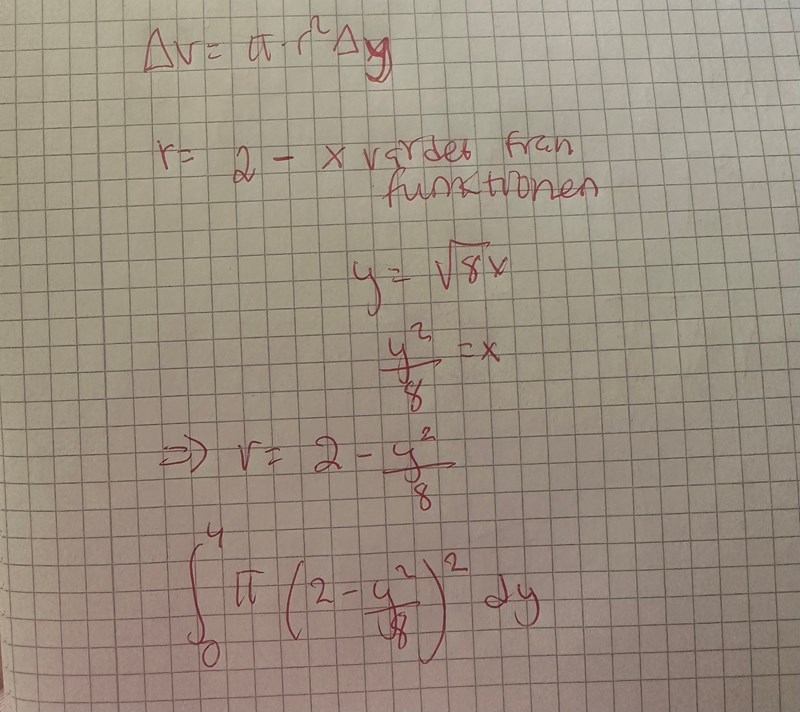 ΔV = π · r²Δy
r = 2 - x värdet från
funktionen
y = √8x
y²/8 = x
⇒ r = 2 - y²/8
∫₀⁴ π (2 - y²/8)² dy